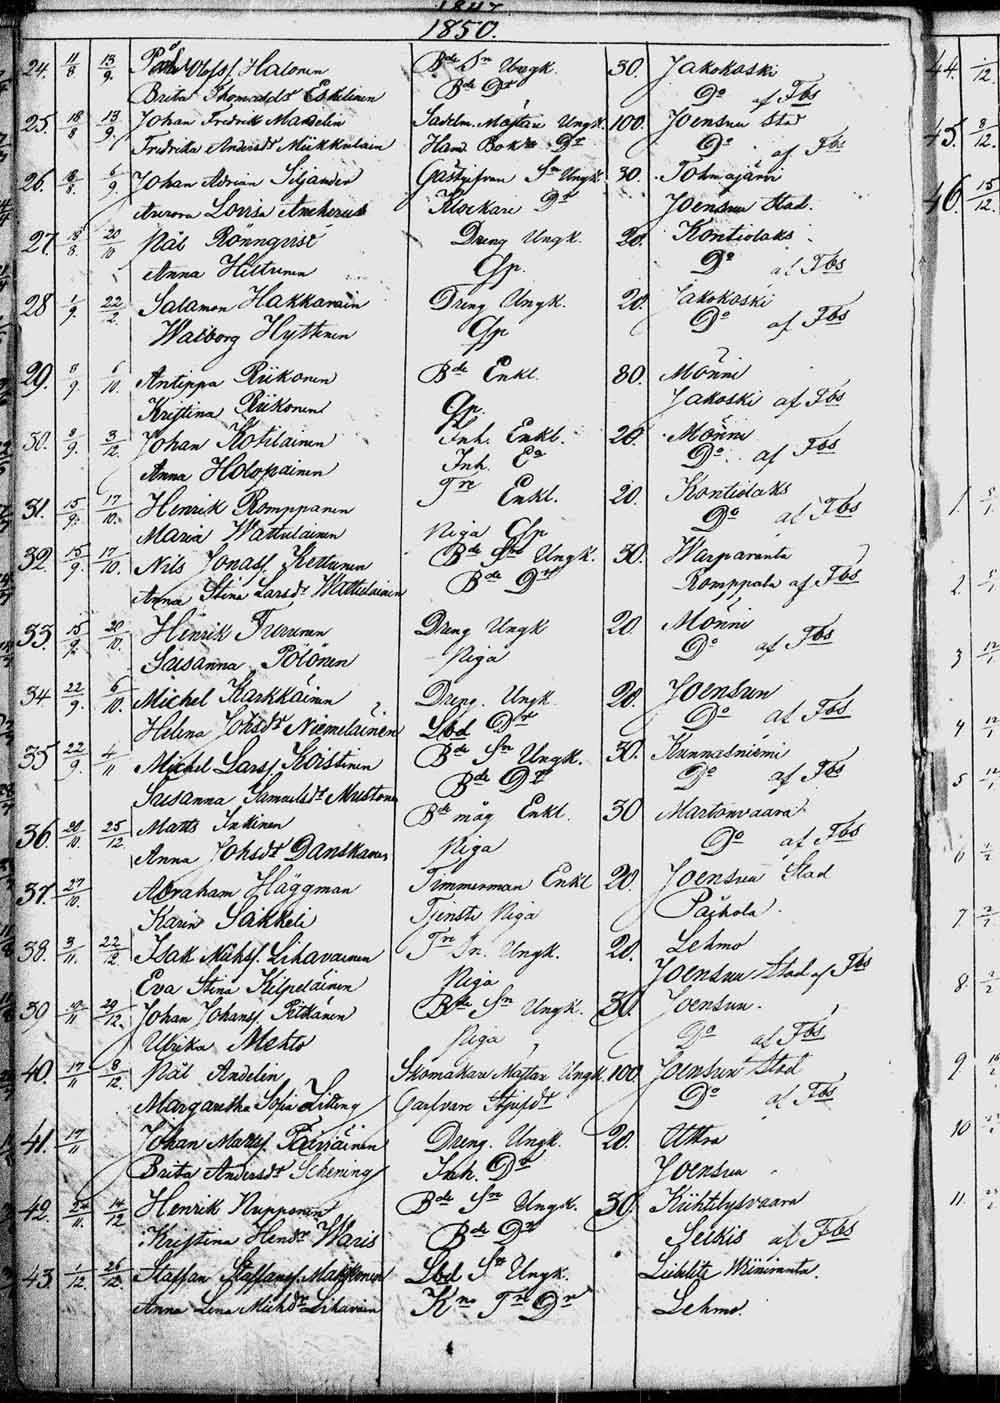 1847
1850.
24. 11/8 13/9. Påhl Olofss. Halonen Bde Sn Ungk. 30. Jakokoski
Brita Thomasdr Eskelinen Bde Dr Do af Fbs
25. 18/8 13/9. Johan Fredrik Mandelin Sadelm. Mästare Ungk. 100. Joensuu Stad
Fredrika Andersdr Miikkulain Hand Bokh. Dr Do af Fbs
26. 8/8. 6/9. Johan Adrian Siljander Gästgifvare Sn Ungk. 30. Tohmajärvi
Aurora Lovisa Klockare Dr Joensuu Stad.
27. 18/8. 20/10 Pål Rönnqvist Dreng Ungk. 20. Kontiolaks
Anna Hiltunen Qsp. Do af Fbs
28 1/9. 22/12. Salamon Hakkarain Dreng Ungk. 20. Jakokoski
Walborg Hyttinen Qsp Do af Fbs
29. 8/9. 6/10. Antippa Riikonen Bde Enkl. 80. Mönni
Kristina Riikonen Qsp. Jakoski af Fbs
30. 8/9. 3/12. Johan Kotilainen Inh. Enkl. 20. Mönni
Anna Holopainen Inh. Ea Do. af Fbs
31. 15/9. 17/10. Henrik Romppanen Trp Enkl. 20. Kontiolaks
Maria Wattulainen Piga Qsp Do af Fbs
32. 15/9. 17/10. Nils Jonass. Kettunen Bde Sn Ungk. 30. Warparanta
Anna Stina Larsdr Wattulainen Bde Dr Romppala af Fbs
33. 15/9. 20/10. Henrik Turunen Dreng Ungk 20. Mönni
Susanna Pölönen Piga Do af Fbs
34 22/9. 6/10. Michel Karkkäinen Dreng. Ungk. 20. Joensuu
Helena Johsdr Niemeläinen Lbd Dr Do af Fbs
35 22/9. 4/11 Michel Larss. Koistinen Bde Sn Ungk. 30. Kunnasniemi
Susanna Samuelsdr Mustonen Bde Dr Do af Fbs
36. 20/10. 25/12. Matts Inkinen Bde måg Enkl. 30 Martonvaara
Anna Johsdr Danskanen Piga Do af Fbs
37. 27/10. Abraham Häggman Timmerman Enkl 20. Joensuu Stad
Karin Sakkeli Tjenste Piga Paihola.
38. 3/11. 22/12. Isak Michss. Lihavainen Trp Sn. Ungk. 20. Lehmo
Eva Stina Kilpeläinen Piga Joensuu Stad af Fbs
39 10/11 29/12. Johan Johanss. Pitkänen Bde Sn Ungk. 30. Joensuu.
Ulrika Mehto Piga Do af Fbs
40. 17/11 8/12. Pål Andelin Skomakare Mästare Ungk 100 Joensuu Stad
Margaretha Sofia Garfvare Do af Fbs
41. 17/11 Johan Matss. Päiviäinen Dreng. Ungk. 20. Uttra
Brita Andersdr Schening Inh. Dr Joensuu
42. 24/11. 14/12 Henrik Nupponen Bde Sn Ungk. 30. Kiihtelysvaara
Kristina Hendr Waris Bde Dr Selkis af Fbs
43. 1/12 26/12. Staffan Staffanss. Makkonen Lbd Sn Ungk. Liebelitz
Anna Lena Michdr Lihavain Kno Trp Dr Lehmo.
44. /12.
45. 8/12.
46. 15/12.
1.
2.
3 12/1
4 12/1
5 12/1
6
7
8.
9
10
11